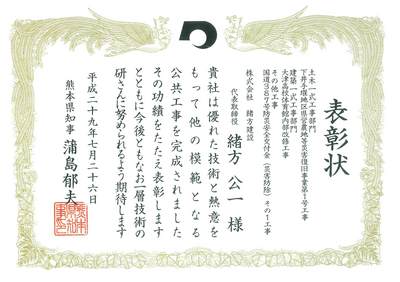 表彰状
土木一式工事部門
下井手堰地区県営農地等災害復旧事業第1号工事
建築一式工事部門
大津高校体育館内部改修工事
その他工事
国道387号防災安全交付金(災害防除)その1工事
株式会社 緒方建設
代表取締役 緒方公一様
貴社は優れた技術と熱意を
もって他の模範となる
公共工事を完成されました
その功績をたたえ表彰します
とともに今後ともなお一層技術の
研さんに努められるよう期待します
平成二十九年七月二十六日
熊本県知事 蒲島郁夫